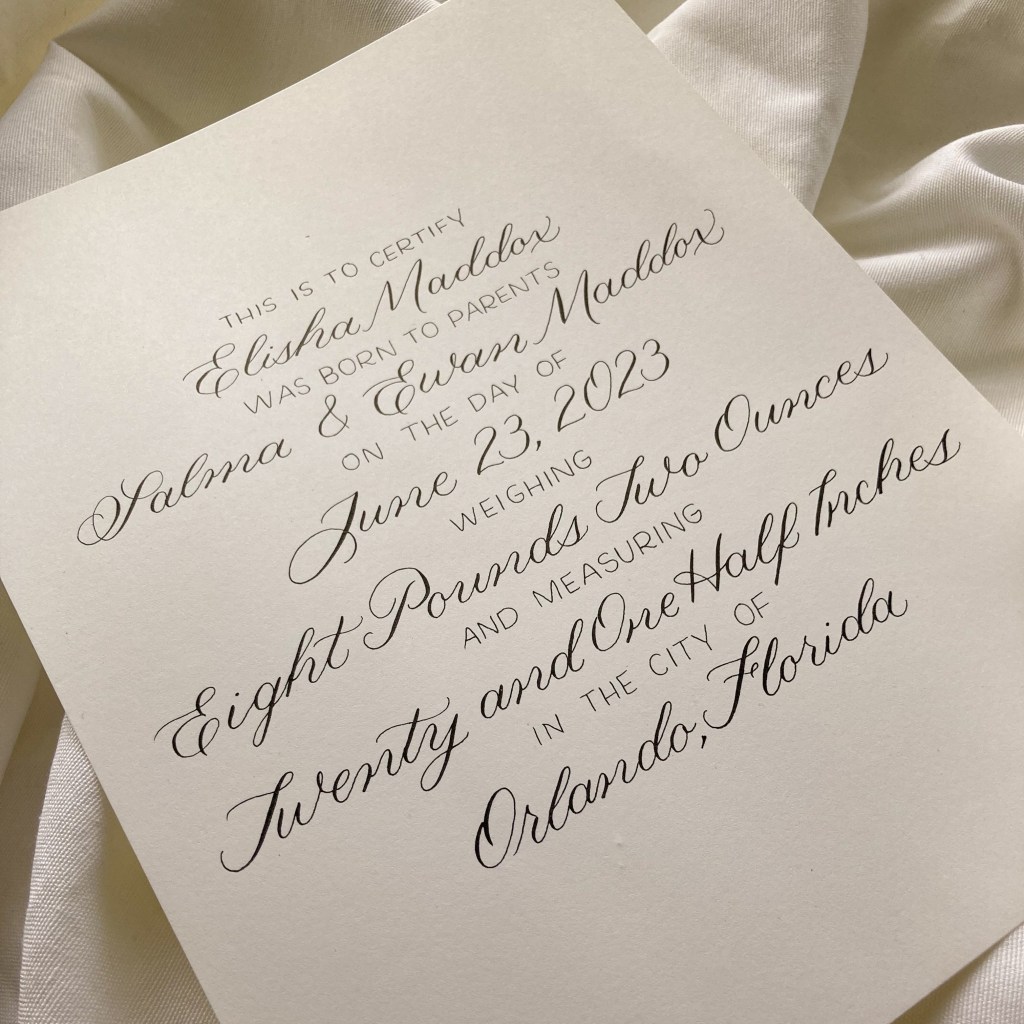 THIS IS TO CERTIFY
Elisha Maddox
WAS BORN TO PARENTS
Salma & Ewan Maddox
ON THE DAY OF
June 23, 2023
WEIGHING
Eight Pounds Two Ounces
AND MEASURING
Twenty and One Half Inches
IN THE CITY OF
Orlando, Florida